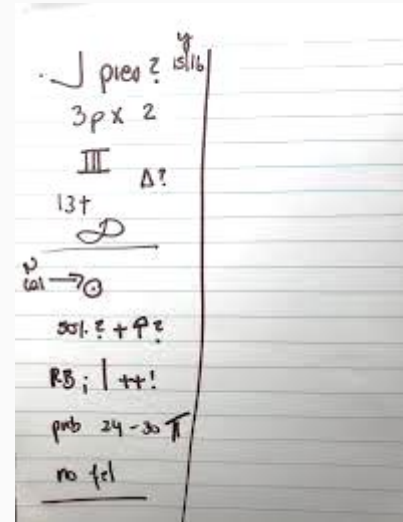 y
15/16
. J pieo?
3px 2
III
Δ?
13+
N
col →⊙
50%? + P?
RB; | ++!
prob 24-30 π
no fel